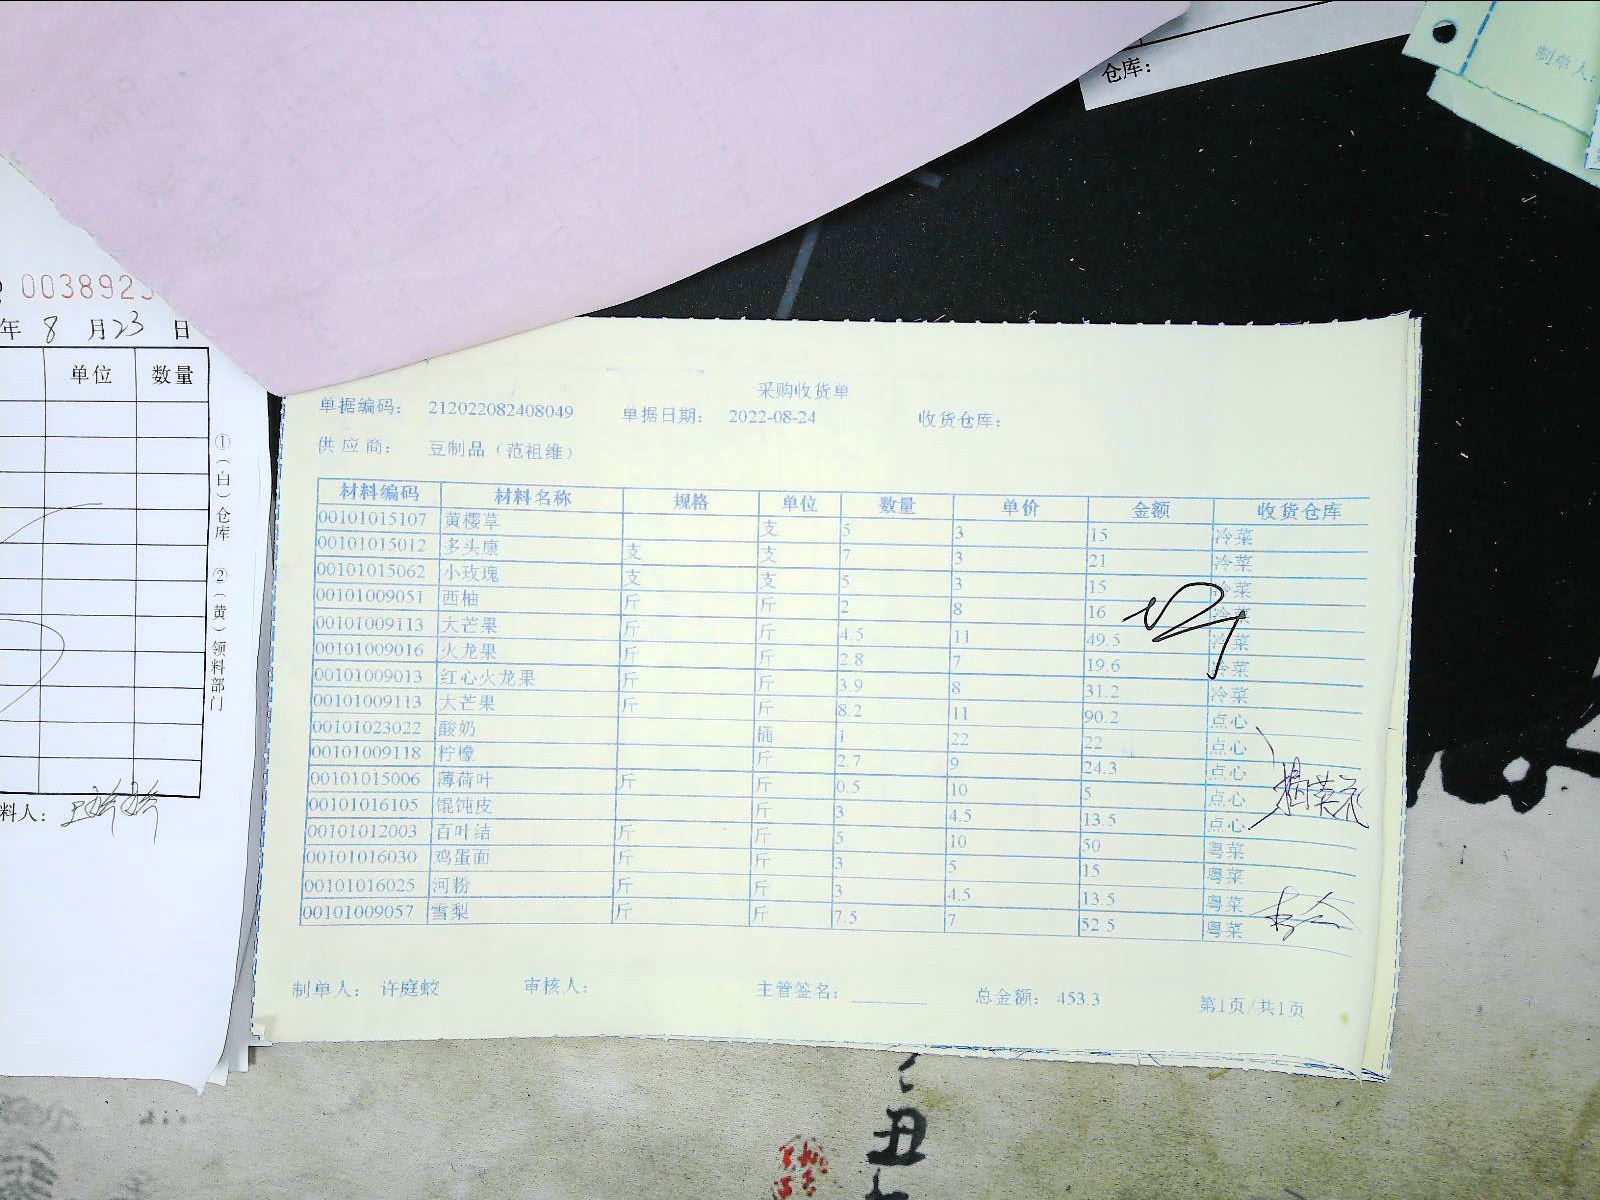 仓库：
制单人：
003892
年 8 月 23 日
单位 数量
①（白）仓库 ②（黄）领料部门
料人：
采购收货单
单据编码： 212022082408049 单据日期： 2022-08-24 收货仓库：
供应商： 豆制品（范祖维）
材料编码 材料名称 规格 单位 数量 单价 金额 收货仓库
00101015107 黄樱草 支 5 3 15 冷菜
00101015012 多头康 支 支 7 3 21 冷菜
00101015062 小玫瑰 支 支 5 3 15 冷菜
00101009051 西柚 斤 斤 2 8 16 冷菜
00101009113 大芒果 斤 斤 4.5 11 49.5 冷菜
00101009016 火龙果 斤 斤 2.8 7 19.6 冷菜
00101009013 红心火龙果 斤 斤 3.9 8 31.2 冷菜
00101009113 大芒果 斤 斤 8.2 11 90.2 点心
00101023022 酸奶 桶 1 22 22 点心
00101009118 柠檬 斤 2.7 9 24.3 点心
00101015006 薄荷叶 斤 斤 0.5 10 5 点心
00101016105 馄饨皮 斤 3 4.5 13.5 点心
00101012003 百叶结 斤 斤 5 10 50 粤菜
00101016030 鸡蛋面 斤 斤 3 5 15 粤菜
00101016025 河粉 斤 斤 3 4.5 13.5 粤菜
00101009057 雪梨 斤 斤 7.5 7 52.5 粤菜
制单人： 许庭蛟 审核人： 主管签名： 总金额： 453.3 第1页/共1页
丑